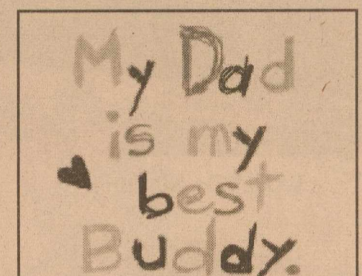 My Dad
is my
best
Buddy.